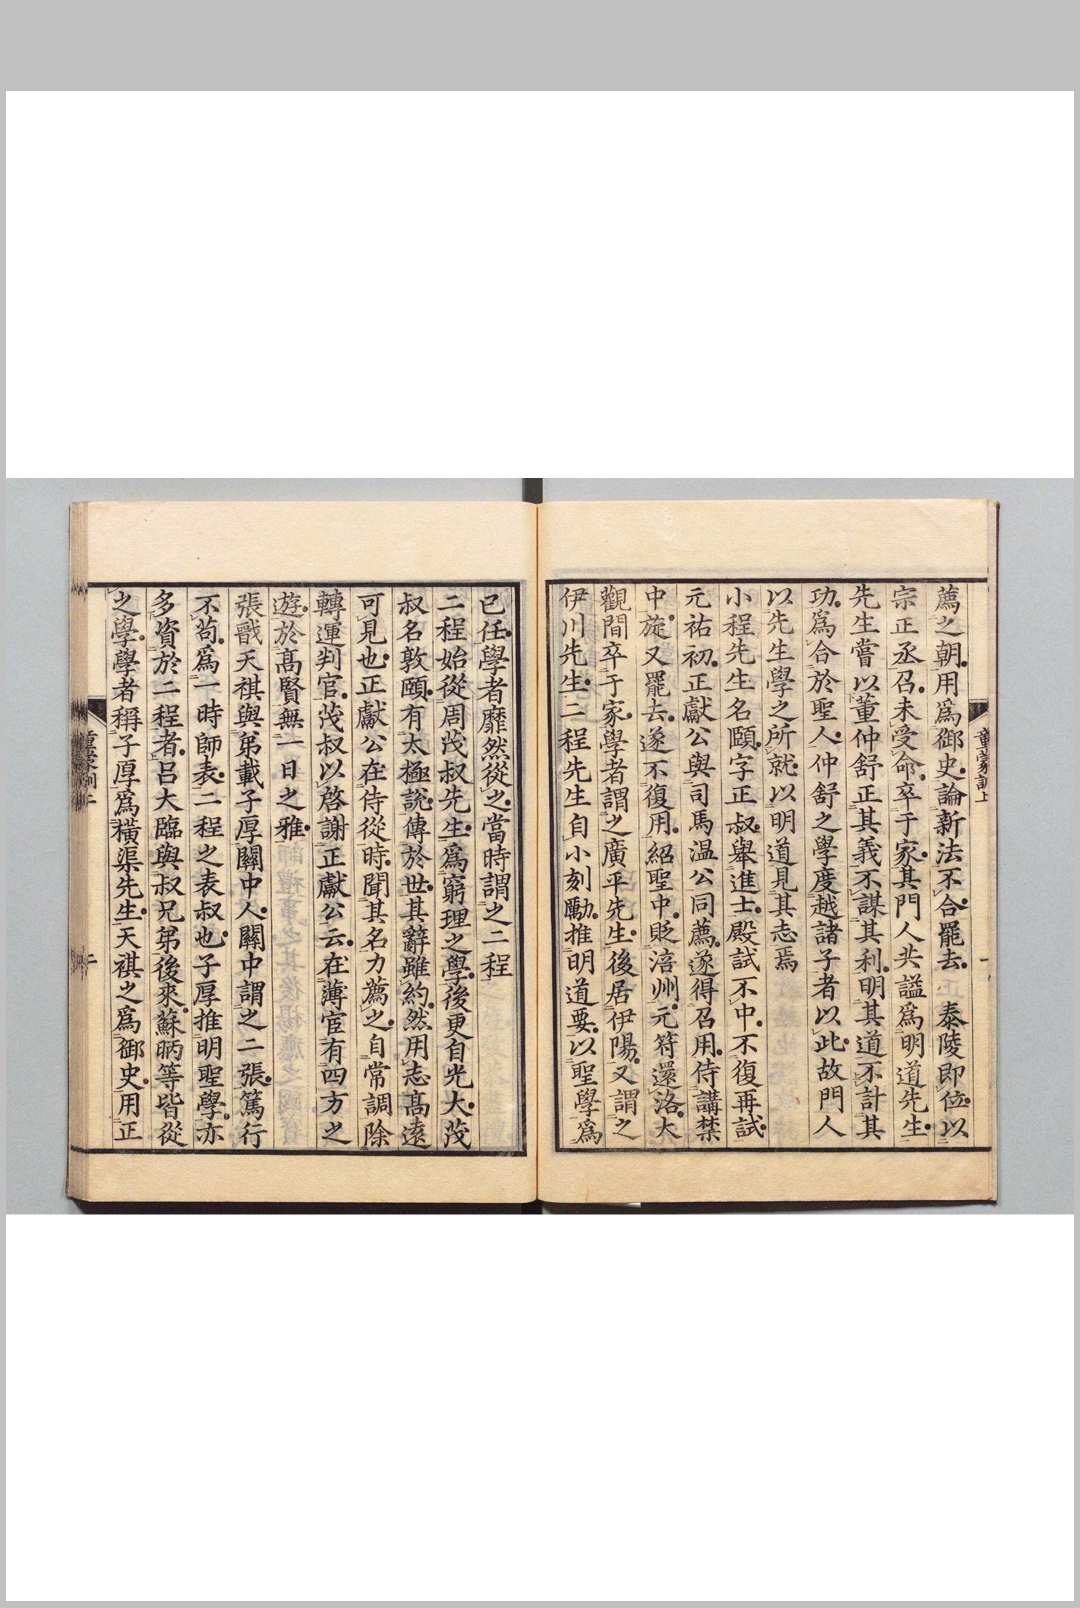 薦之朝用爲御史論新法不合罷去　泰陵即位以
宗正丞召未受命卒于家其門人共謚爲明道先生
先生嘗以董仲舒正其義不謀其利明其道不計其
功爲合於聖人仲舒之學度越諸子者以此故門人
以先生學之所就以明道見其志焉
小程先生名頤字正叔舉進士殿試不中不復再試
元祐初正獻公與司馬温公同薦遂得召用侍講禁
中旋又罷去遂不復用紹聖中貶涪州元符還洛大
觀間卒于家學者謂之廣平先生後居伊陽又謂之
伊川先生二程先生自小刻勵推明道要以聖學爲
童蒙訓上
一
已任學者靡然從之當時謂之二程
二程始從周茂叔先生爲窮理之學後更自光大茂
叔名敦頤有太極說傳於世其辭雖約然用志髙遠
可見也正獻公在侍從時聞其名力薦之自常調除
轉運判官茂叔以啓謝正獻公云在薄宦有四方之
遊於髙賢無一日之雅
張戩天祺與弟載子厚關中人關中謂之二張篤行
不苟爲一時師表二程之表叔也子厚推明聖學亦
多資於二程者呂大臨與叔兄弟後來蘇昞等皆從
之學學者稱子厚爲橫渠先生天祺之爲御史用正